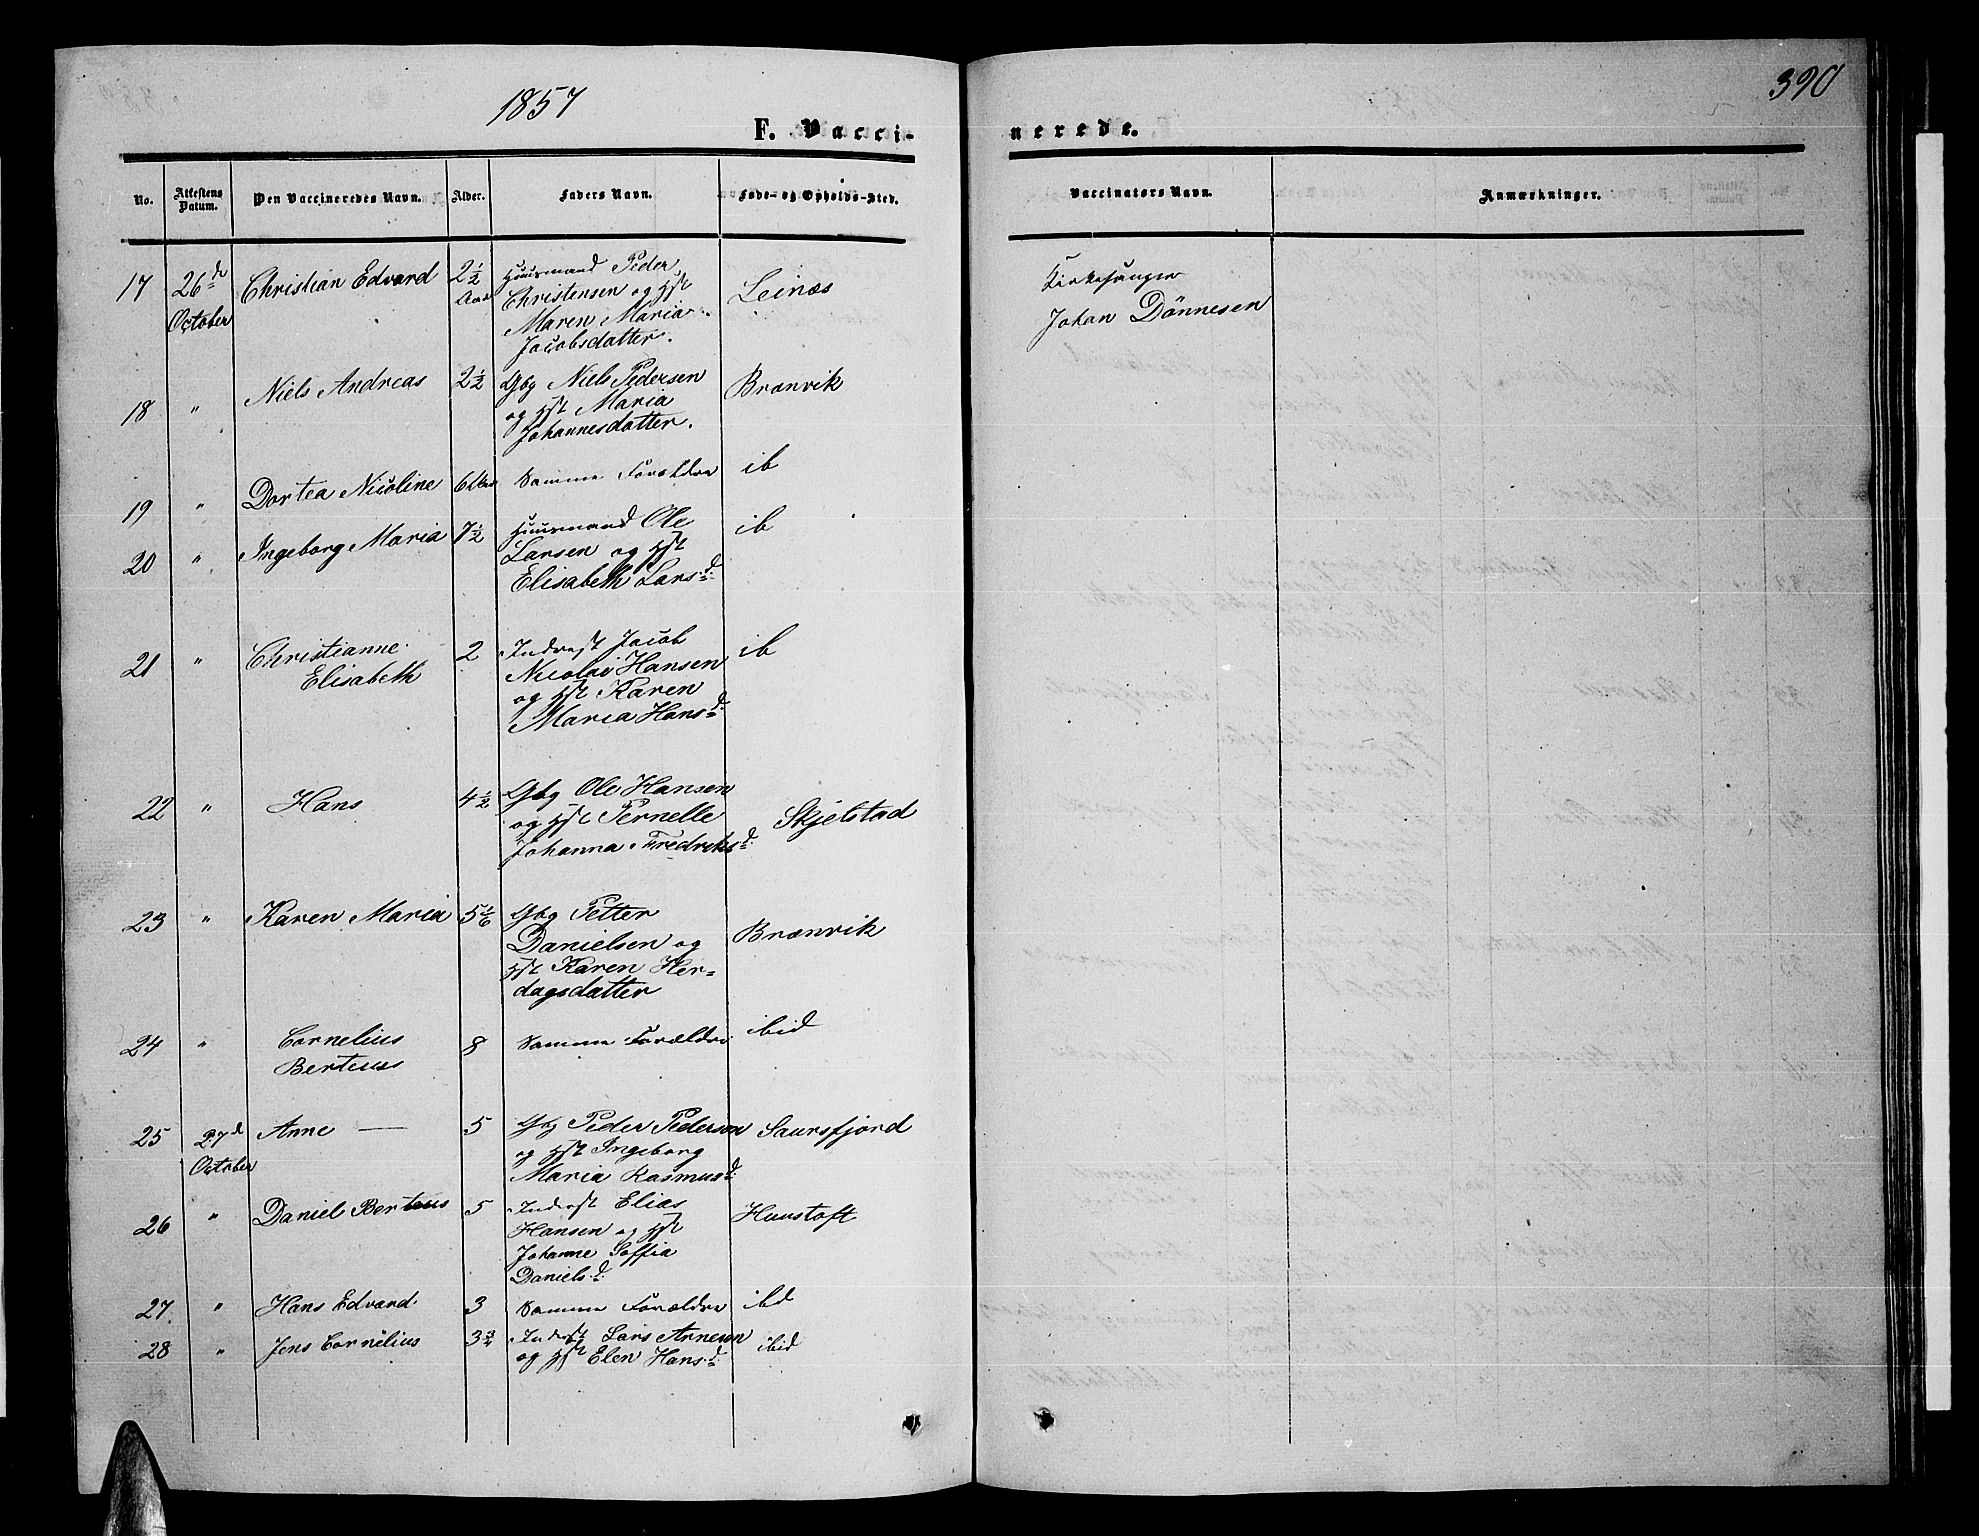 1857
390
F. Vacci-
nerede.
No.
Attestens Datum.
Den Vaccineredes Navn.
Alder.
Faders Navn.
Føde- og Opholds-Sted.
Vaccinators Navn.
Anmærkninger.
17 26de October Christian Edvard 2½ Aar Huusmand Peder
Christensen og Hst
Maren Maria
Jacobsdatter.
Leinæs
Kirkesanger
Johan Dönnesen
18 " Niels Andreas 2½ Gbg Niels Pedersen
og Hst Maria
Johannesdatter.
Brænvik
19 " Dortea Nicoline 6 Samme Forældre ib
20 " Ingeborg Maria 7½ Huusmand Ole
Larsen og Hst
Elisabeth Larsd:
ib
21 " Christianne
Elisabeth
2 Inderst Jacob
Nicolai Hansen
og Hst Karen
Maria Hansd:
ib
22 " Hans 4½ Gbg Ole Hansen
og Hst Pernelle
Johanna Fredriksd:
Skjelstad
23 " Karen Maria 5 Gbg Petter
Danielsen og
Hst Karen Her-
dagsdatter
Brænvik
24 " Cornelius
Berteus
8 Samme Forældre ibid
25 27d October Anne — 5 Gbg Peder Pederson
og Hst Ingeborg
Maria Rasmusd:
Saursfjord
26 " Daniel Berteus 5 Inderst Elias
Hansen og Hst
Johanne Soffia
Danielsd:
Hunstoft
27. " Hans Edvard 3 Samme Forældre ibd
28 " Jens Cornelius 3¾ Inderst Lars Arneson
og Hst Elen Hansd:
ibid